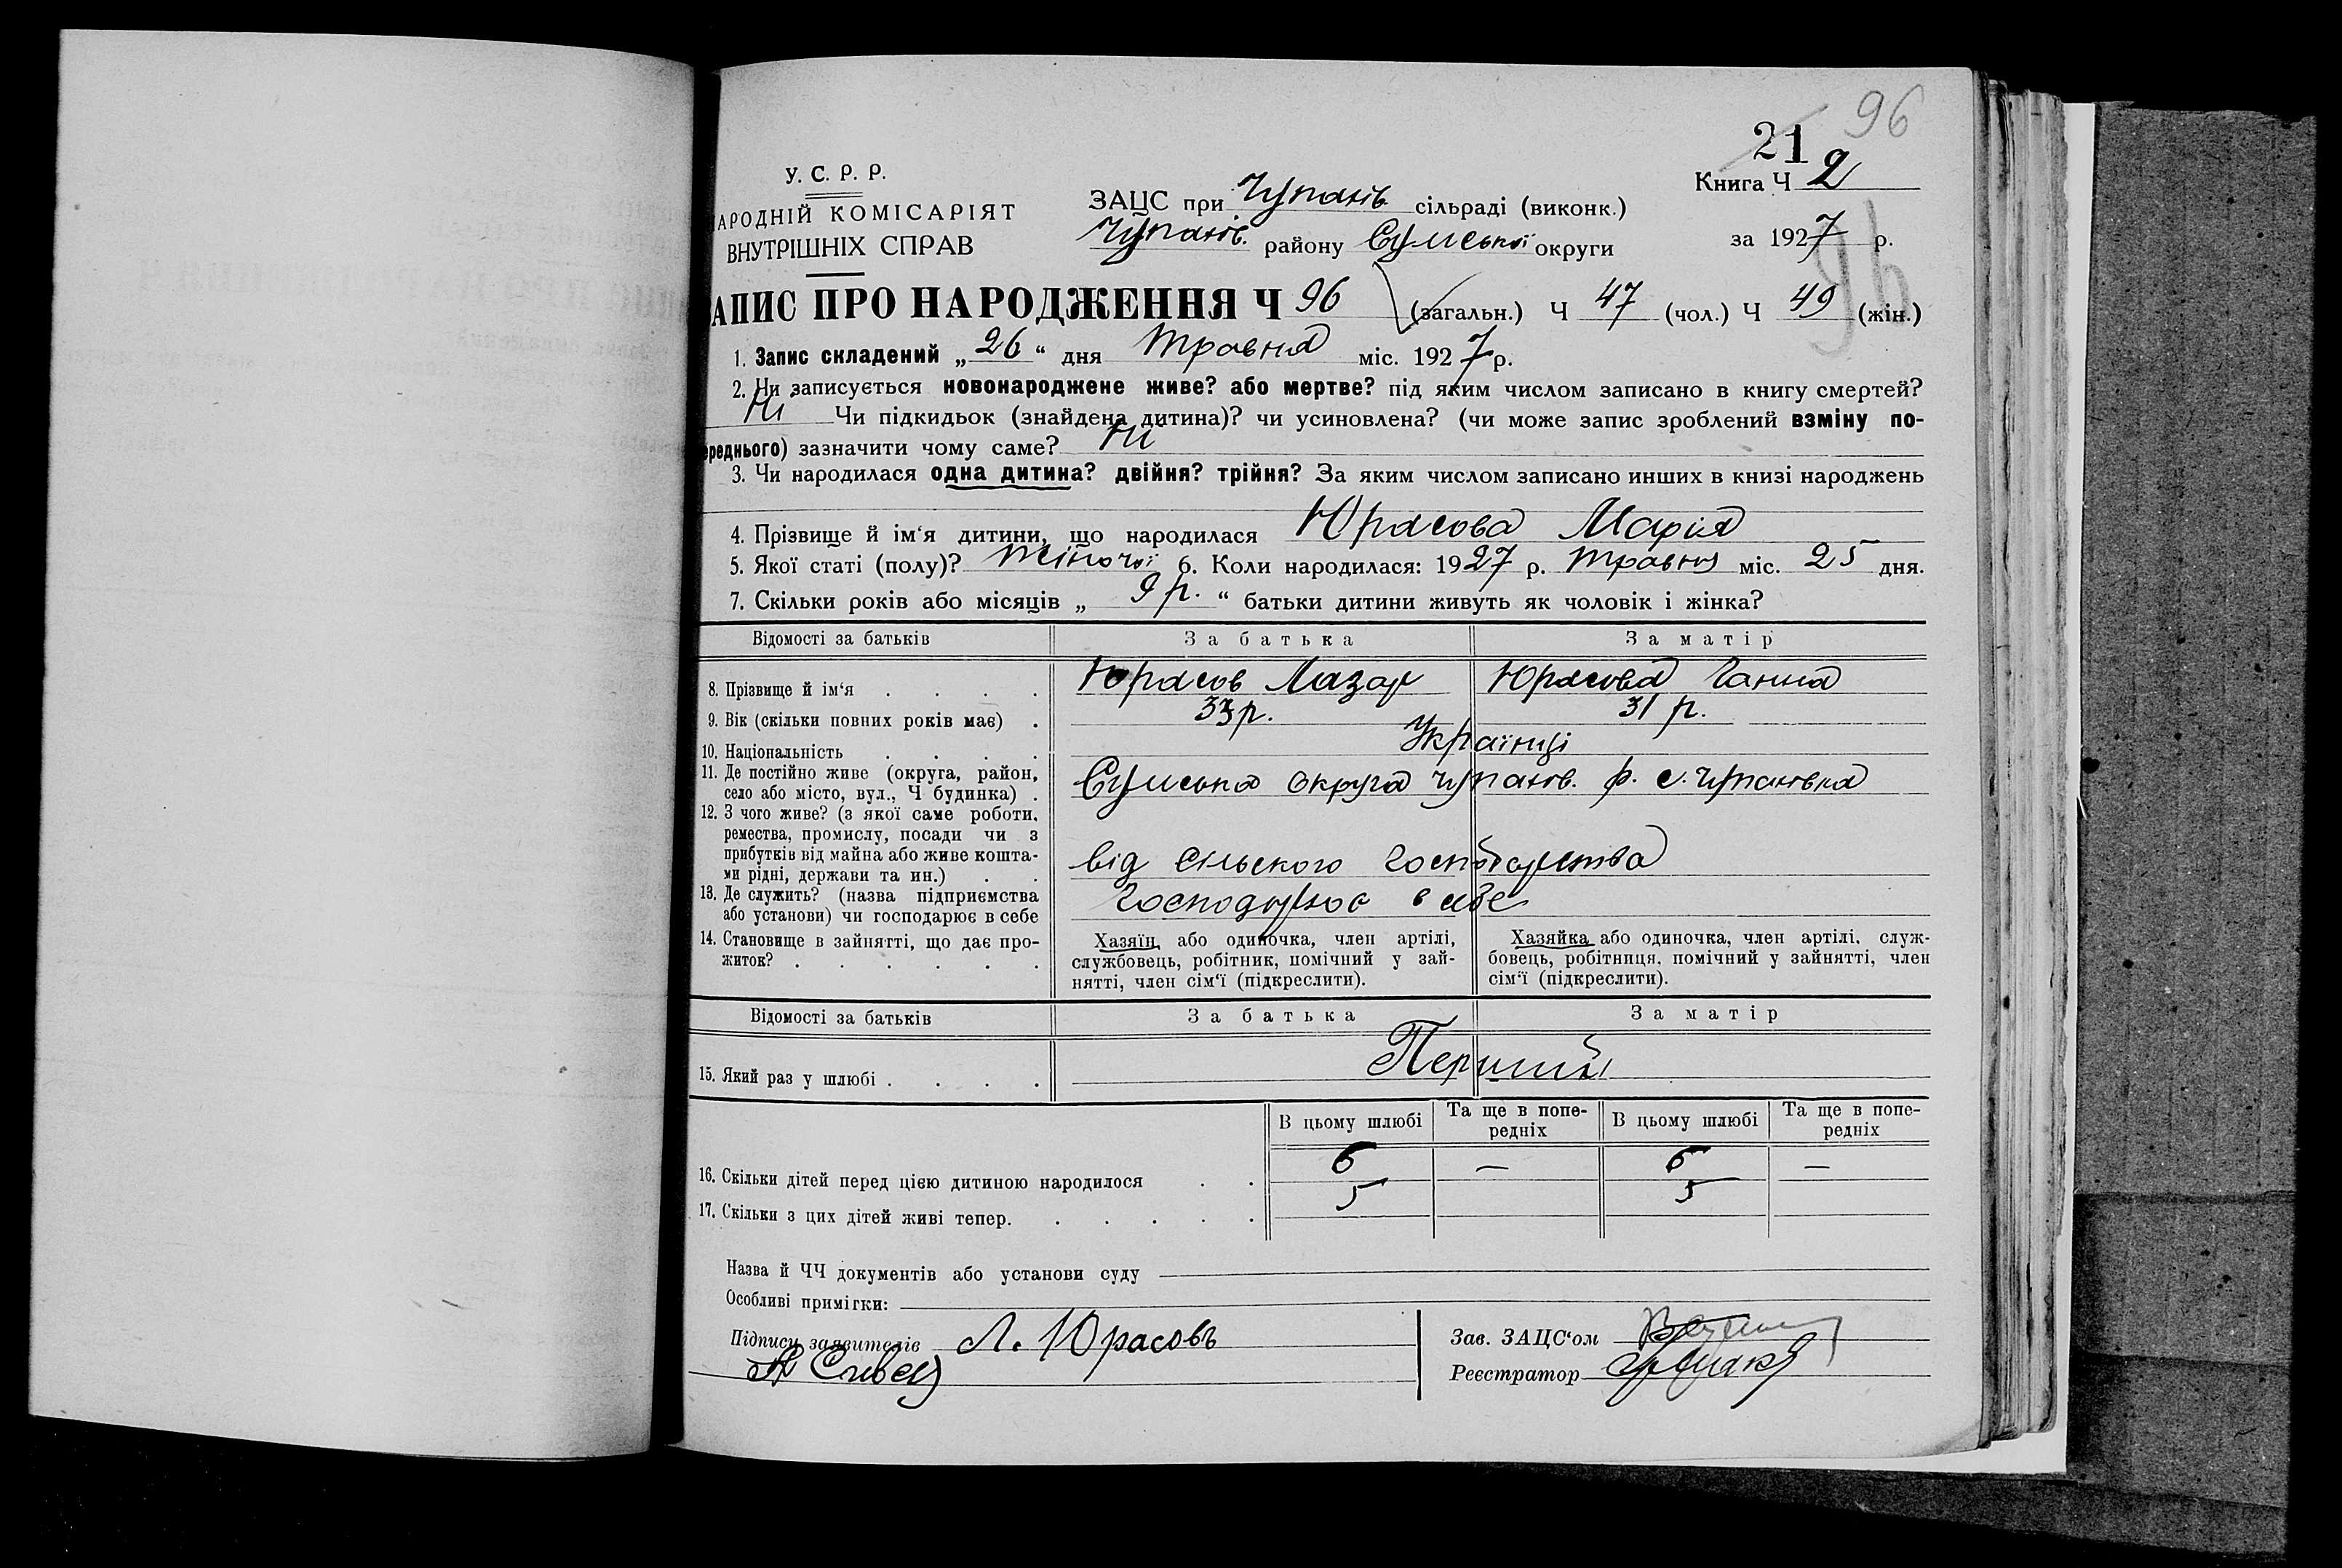 96
21
У. С. Р. Р.
Книга Ч 2
АРОДНІЙ КОМІСАРІЯТ
ВНУТРІШНІХ СПРАВ
ЗАЦС при Чупахів сільраді (виконк.)
Чупахів. району Сумської округи
за 1927 р.
96
АПИС ПРО НАРОДЖЕННЯ Ч 96 (загальн.) Ч 47 (чол.) Ч 49 (жін.)
1. Запис складений „26“ дня Травня міс. 1927 р.
2. Чи записується новонароджене живе? або мертве? під яким числом записано в книгу смертей?
Ні Чи підкидьок (знайдена дитина)? чи усиновлена? (чи може запис зроблений взміну по-
ереднього) зазначити чому саме? Ні
3. Чи народилася одна дитина? двійня? трійня? За яким числом записано инших в книзі народжень
4. Прізвище й ім‘я дитини, що народилася Юрасова Марія
5. Якої статі (полу)? жіночої 6. Коли народилася: 1927 р. травня міс. 25 дня.
7. Скільки років або місяців „ 9 р. “ батьки дитини живуть як чоловік і жінка?
Відомості за батьків За батька За матір
8. Прізвище й ім‘я . . . . Юрасов Лазар Юрасова Ганна
9. Вік (скільки повних років має) . 33 р. 31 р.
10. Національність . . . . Українці
11. Де постійно живе (округа, район,
село або місто, вул., Ч будинка) . Сумська округа Чупахів. р. с. Чупахівка
12. З чого живе? (з якої саме роботи,
ремества, промислу, посади чи з
прибутків від майна або живе кошта-
ми рідні, держави та ин.) . . від сільского господарства
13. Де служить? (назва підприємства
або установи) чи господарює в себе Господарює в себе
14. Становище в зайнятті, що дає про-
житок? . . . . . .
Хазяїн або одиночка, член артілі,
службовець, робітник, помічний у зай-
нятті, член сім‘ї (підкреслити).
Хазяйка або одиночка, член артілі, служ-
бовець, робітниця, помічний у зайнятті, член
сім‘ї (підкреслити).
Відомості за батьків За батька За матір
15. Який раз у шлюбі . . . . Перший
В цьому шлюбі Та ще в попе-
редніх В цьому шлюбі Та ще в попе-
редніх
16. Скільки дітей перед цією дитиною народилося . . 6 — 6 —
17. Скільки з цих дітей живі тепер. . . . . . 5 5
Назва й ЧЧ документів або установи суду
Особливі примігки:
Підписи заявителів Л. Юрасовъ
Зав. ЗАЦС‘ом
Реєстратор